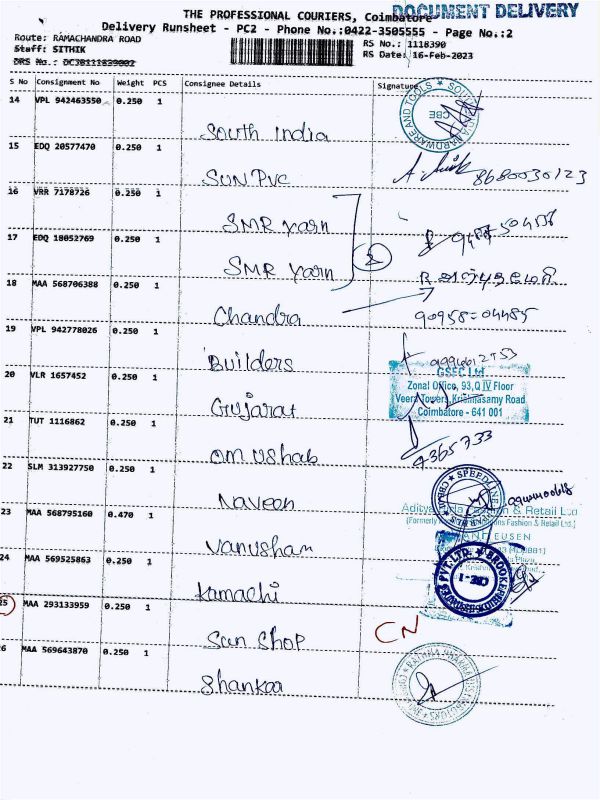 DOCUMENT DELIVERY
THE PROFESSIONAL COURIERS, Coimbatore
Delivery Runsheet - PC2 - Phone No.:0422-3505555 - Page No.:2
Route: RAMACHANDRA ROAD RS No.: 1118390
Staff: SITHIK RS Date: 16-Feb-2023
DRS No.: DCJ0111839002
S No Consignment No Weight PCS Consignee Details Signature
14 VPL 942463550 0.250 1 South India
CBE
15 EDQ 20577470 0.250 1 SUN PVC 8680030123
16 VRR 7178726 0.250 1 SMR yarn
17 EDQ 18052769 0.250 1 SMR yarn 2
18 MAA 568706388 0.250 1 Chandra 90958-04485
19 VPL 942778026 0.250 1 Builders
20 VLR 1657452 0.250 1 Gujarat
GSEC Ltd
Zonal Office, 93,Q IV Floor
Veera Towers, Krishnasamy Road
Coimbatore - 641 001
21 TUT 1116862 0.250 1 om ushab
22 SLM 313927750 0.250 1 Naveen
23 MAA 568795160 0.470 1 Vanusham
Fashion & Retail Ltd
Fashion & Retail Ltd.)
24 MAA 569525863 0.250 1 Kamachi
25 MAA 293133959 0.250 1 Sun Shop CN
6 MAA 569643870 0.250 1 Shankaa